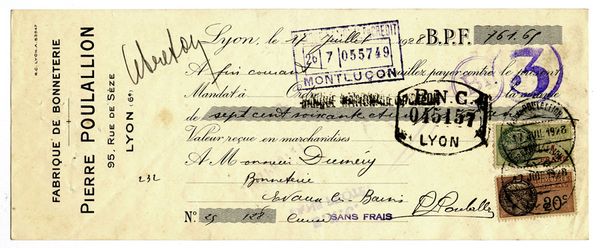 R.C. LYON A
FABRIQUE DE BONNETERIE
PIERRE POULALLION
95, RUE DE SÈZE
LYON (6e)
Lyon, le 17 Juillet 1928 B.P.F. 761.65
CREDIT
20 7 055749
MONTLUÇON
3
A fin courant veuillez payer contre le présent
Mandat à Ordre la somme
de sept cent soixante et
B.N.C.
045157
LYON
Valeur reçue en marchandises
A Monsieur Duméry
232
Bonneterie
Evaux les Bains
N° 29 128 Creuse SANS FRAIS
P. Poulallion
POULALLION
17 JUIL 1928
1928
20c